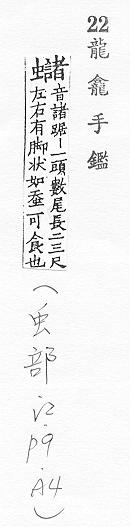 22 龍龕手鑑
䗯 音諸踞—一頭數尾長二三尺
左右有脚状如蚕可食也
(虫部·江·p9·A4)